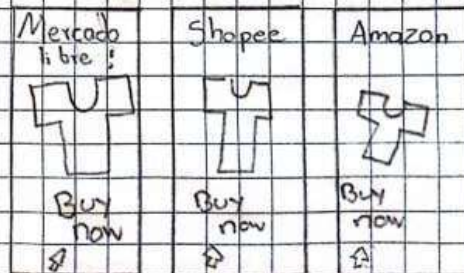 Mercado
libre !
Buy
now
Shopee
Buy
now
Amazon
Buy
now